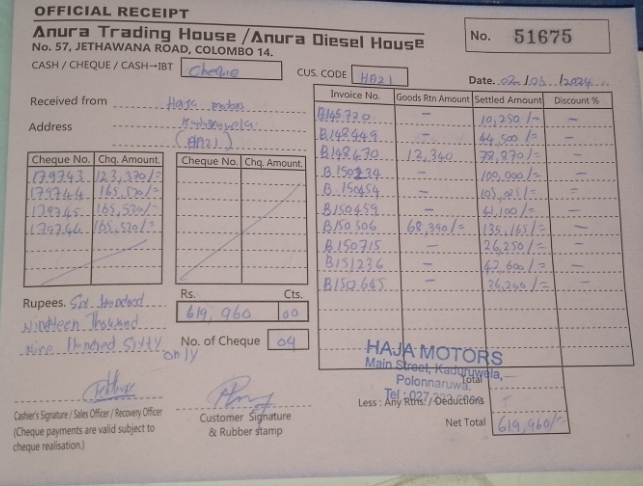 OFFICIAL RECEIPT
Anura Trading House / Anura Diesel House
No. 57, JETHAWANA ROAD, COLOMBO 14.
No. 51675
CASH / CHEQUE / CASH→IBT Cheque
CUS. CODE HA21
Date. 02/03/2024
Received from Haja motors
Address Kaduruwela
(HA21)
Cheque No. Chq. Amount. Cheque No. Chq. Amount.
179743 123,370/=
179744 165,530/=
179745 165,530/=
179746 165,530/=
Invoice No. Goods Rtn Amount Settled Amount Discount %
B145720 – 10,250/= –
B148449 – 44,500/= –
B148470 12,340 78,870/= –
B.150234 – 100,000/= –
B.150454 – 105,025/= =
B150459 – 41,100/= –
B150506 68,390/= 135,165/= –
B.150715 – 26,250/= –
B151236 – 42,600/= –
B150645 – 36,200/= –
Rupees. Six hundred
nineteen Thousand
Nine Hundred Sixty
only
Rs. Cts.
619,960 00
No. of Cheque 04
HAJA MOTORS
Main Street, Kaduruwela,
Polonnaruwa.
Tel : 027
Total
Less : Any Rtns. / Deductions
Net Total 619,960/=
Cashier's Signature / Sales Officer / Recovery Officer
(Cheque payments are valid subject to
cheque realisation.)
Customer Signature
& Rubber stamp